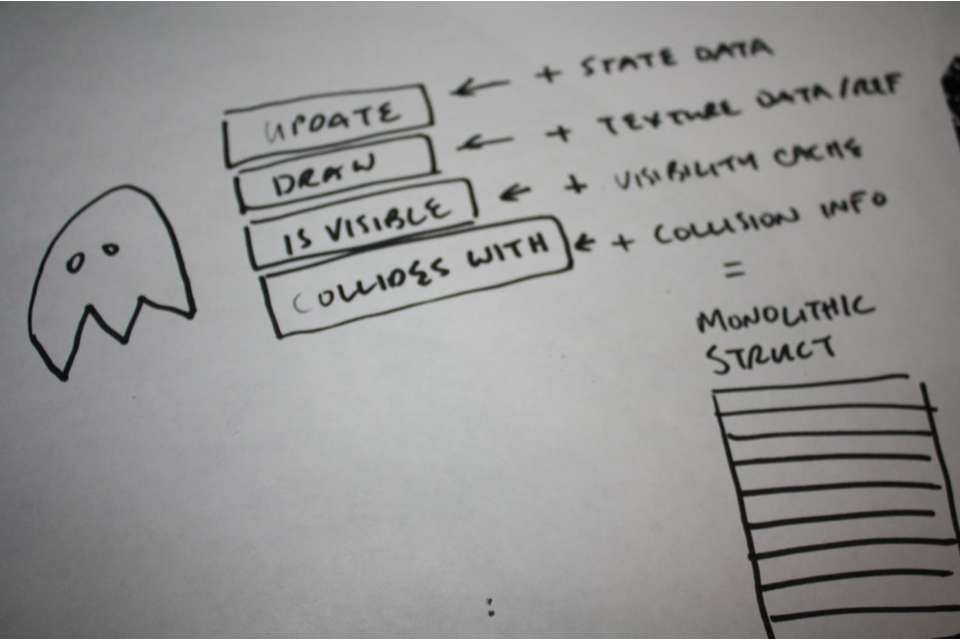 UPDATE ← + STATE DATA
DRAW ← + TEXTURE DATA/REF
IS VISIBLE ← + VISIBILITY CACHE
COLLIDES WITH ← + COLLISION INFO
=
MONOLITHIC
STRUCT